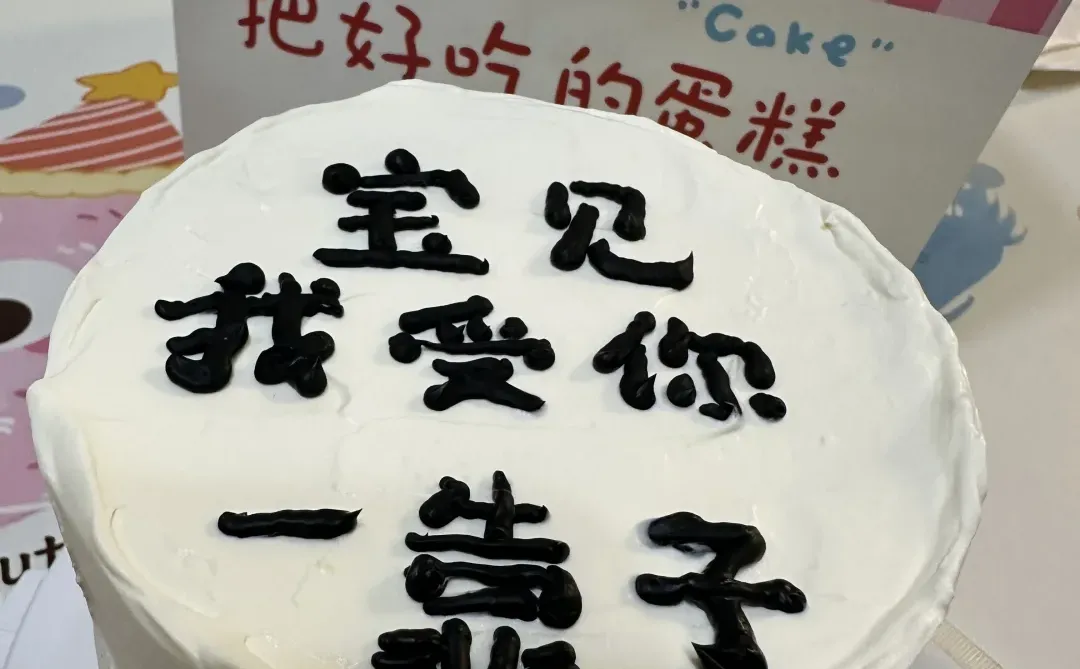 "Cake"
把好吃的蛋糕
宝见
我受你
一靠子